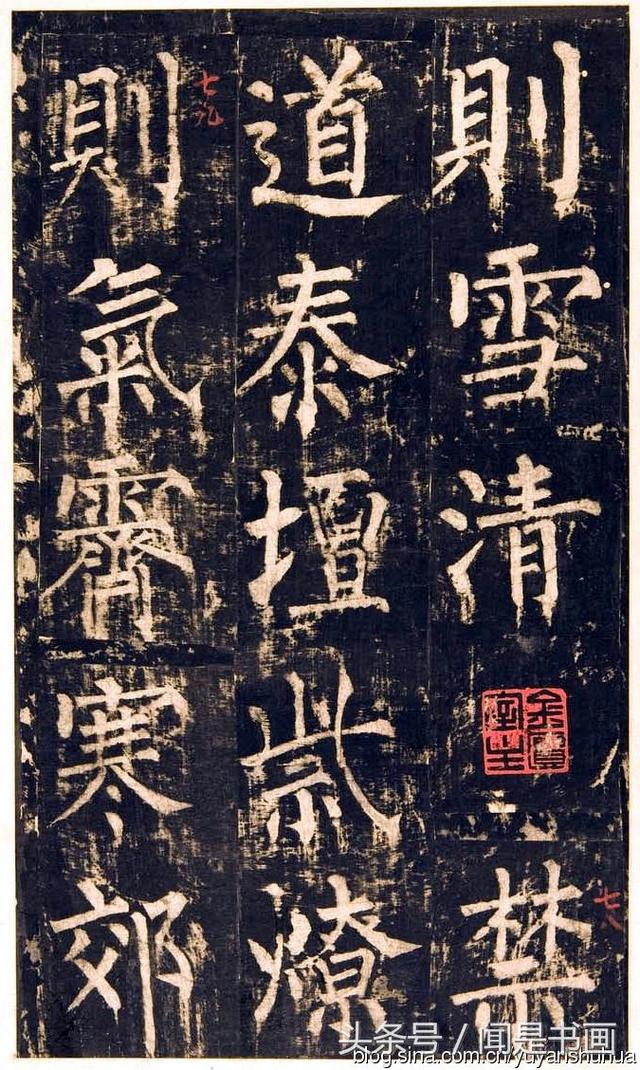 則雪清禁
七八
道泰壇祡燎
則氣霽寒郊
七九
头条号 / 闻是书画
blog.sina.com.cn/yuyanshuhua